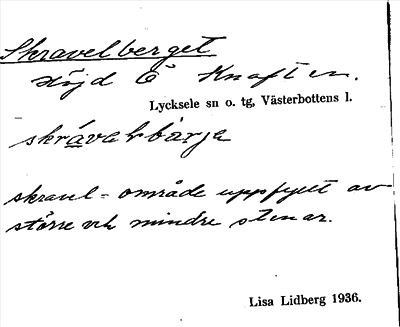 Skravelberget
Höjd Ö Knaften.
Lycksele sn o. tg, Västerbottens l.
skrávəlbàrjə
skravl = område uppfyllt av
större och mindre stenar.
Lisa Lidberg 1936.